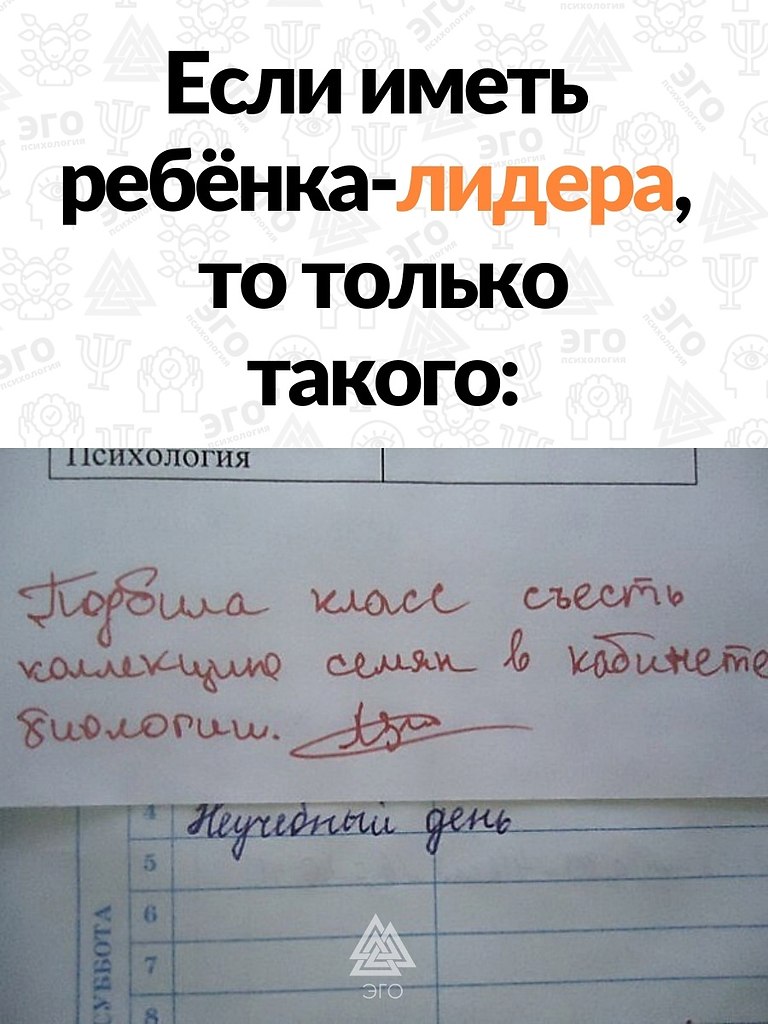 Если иметь
ребёнка-лидера,
то только
такого:
Психология
Подбила класс съесть
коллекцию семян в кабинете
биологии.
4 Неучебный день
5
6
7
8
СУББОТА
ЭГО